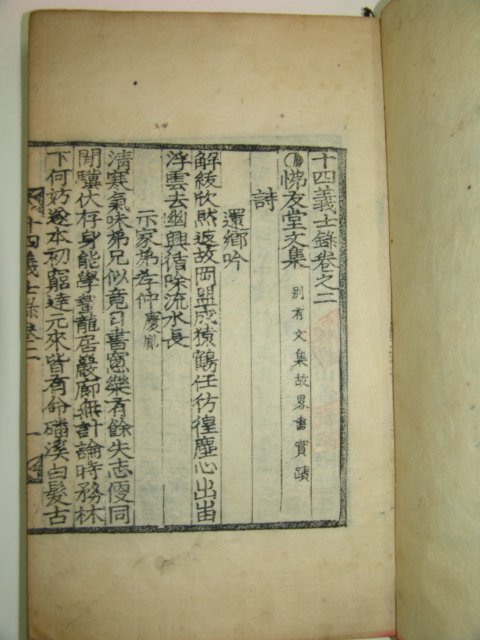 十四義士錄卷之二
悌友堂文集 別有文集故畧書實蹟
詩
還鄉吟
解紱欣然返故岡盟成猿鶴任彷徨塵心出岫
浮雲去幽興循除流水長
示家弟孝仲慶胤
清寒氣味弟兄似竟日書窓樂有餘失志便同
閒驥伏存身能學蟄龍居巖廊無計論時務林
下何妨遂本初窮達元來皆有命磻溪白髮古
十四義士錄卷二 一